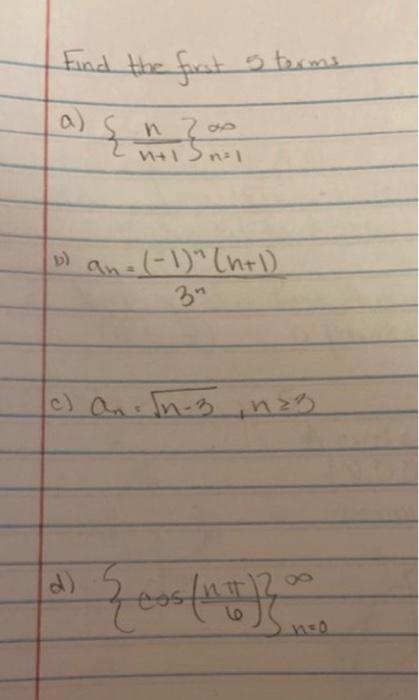 Find the first 5 terms
a) { n/(n+1) }^∞ n=1
b) aₙ = (-1)ⁿ (n+1) / 3ⁿ
c) aₙ = √(n-3) , n≥3
d) { cos(nπ/6) }^∞ n=0